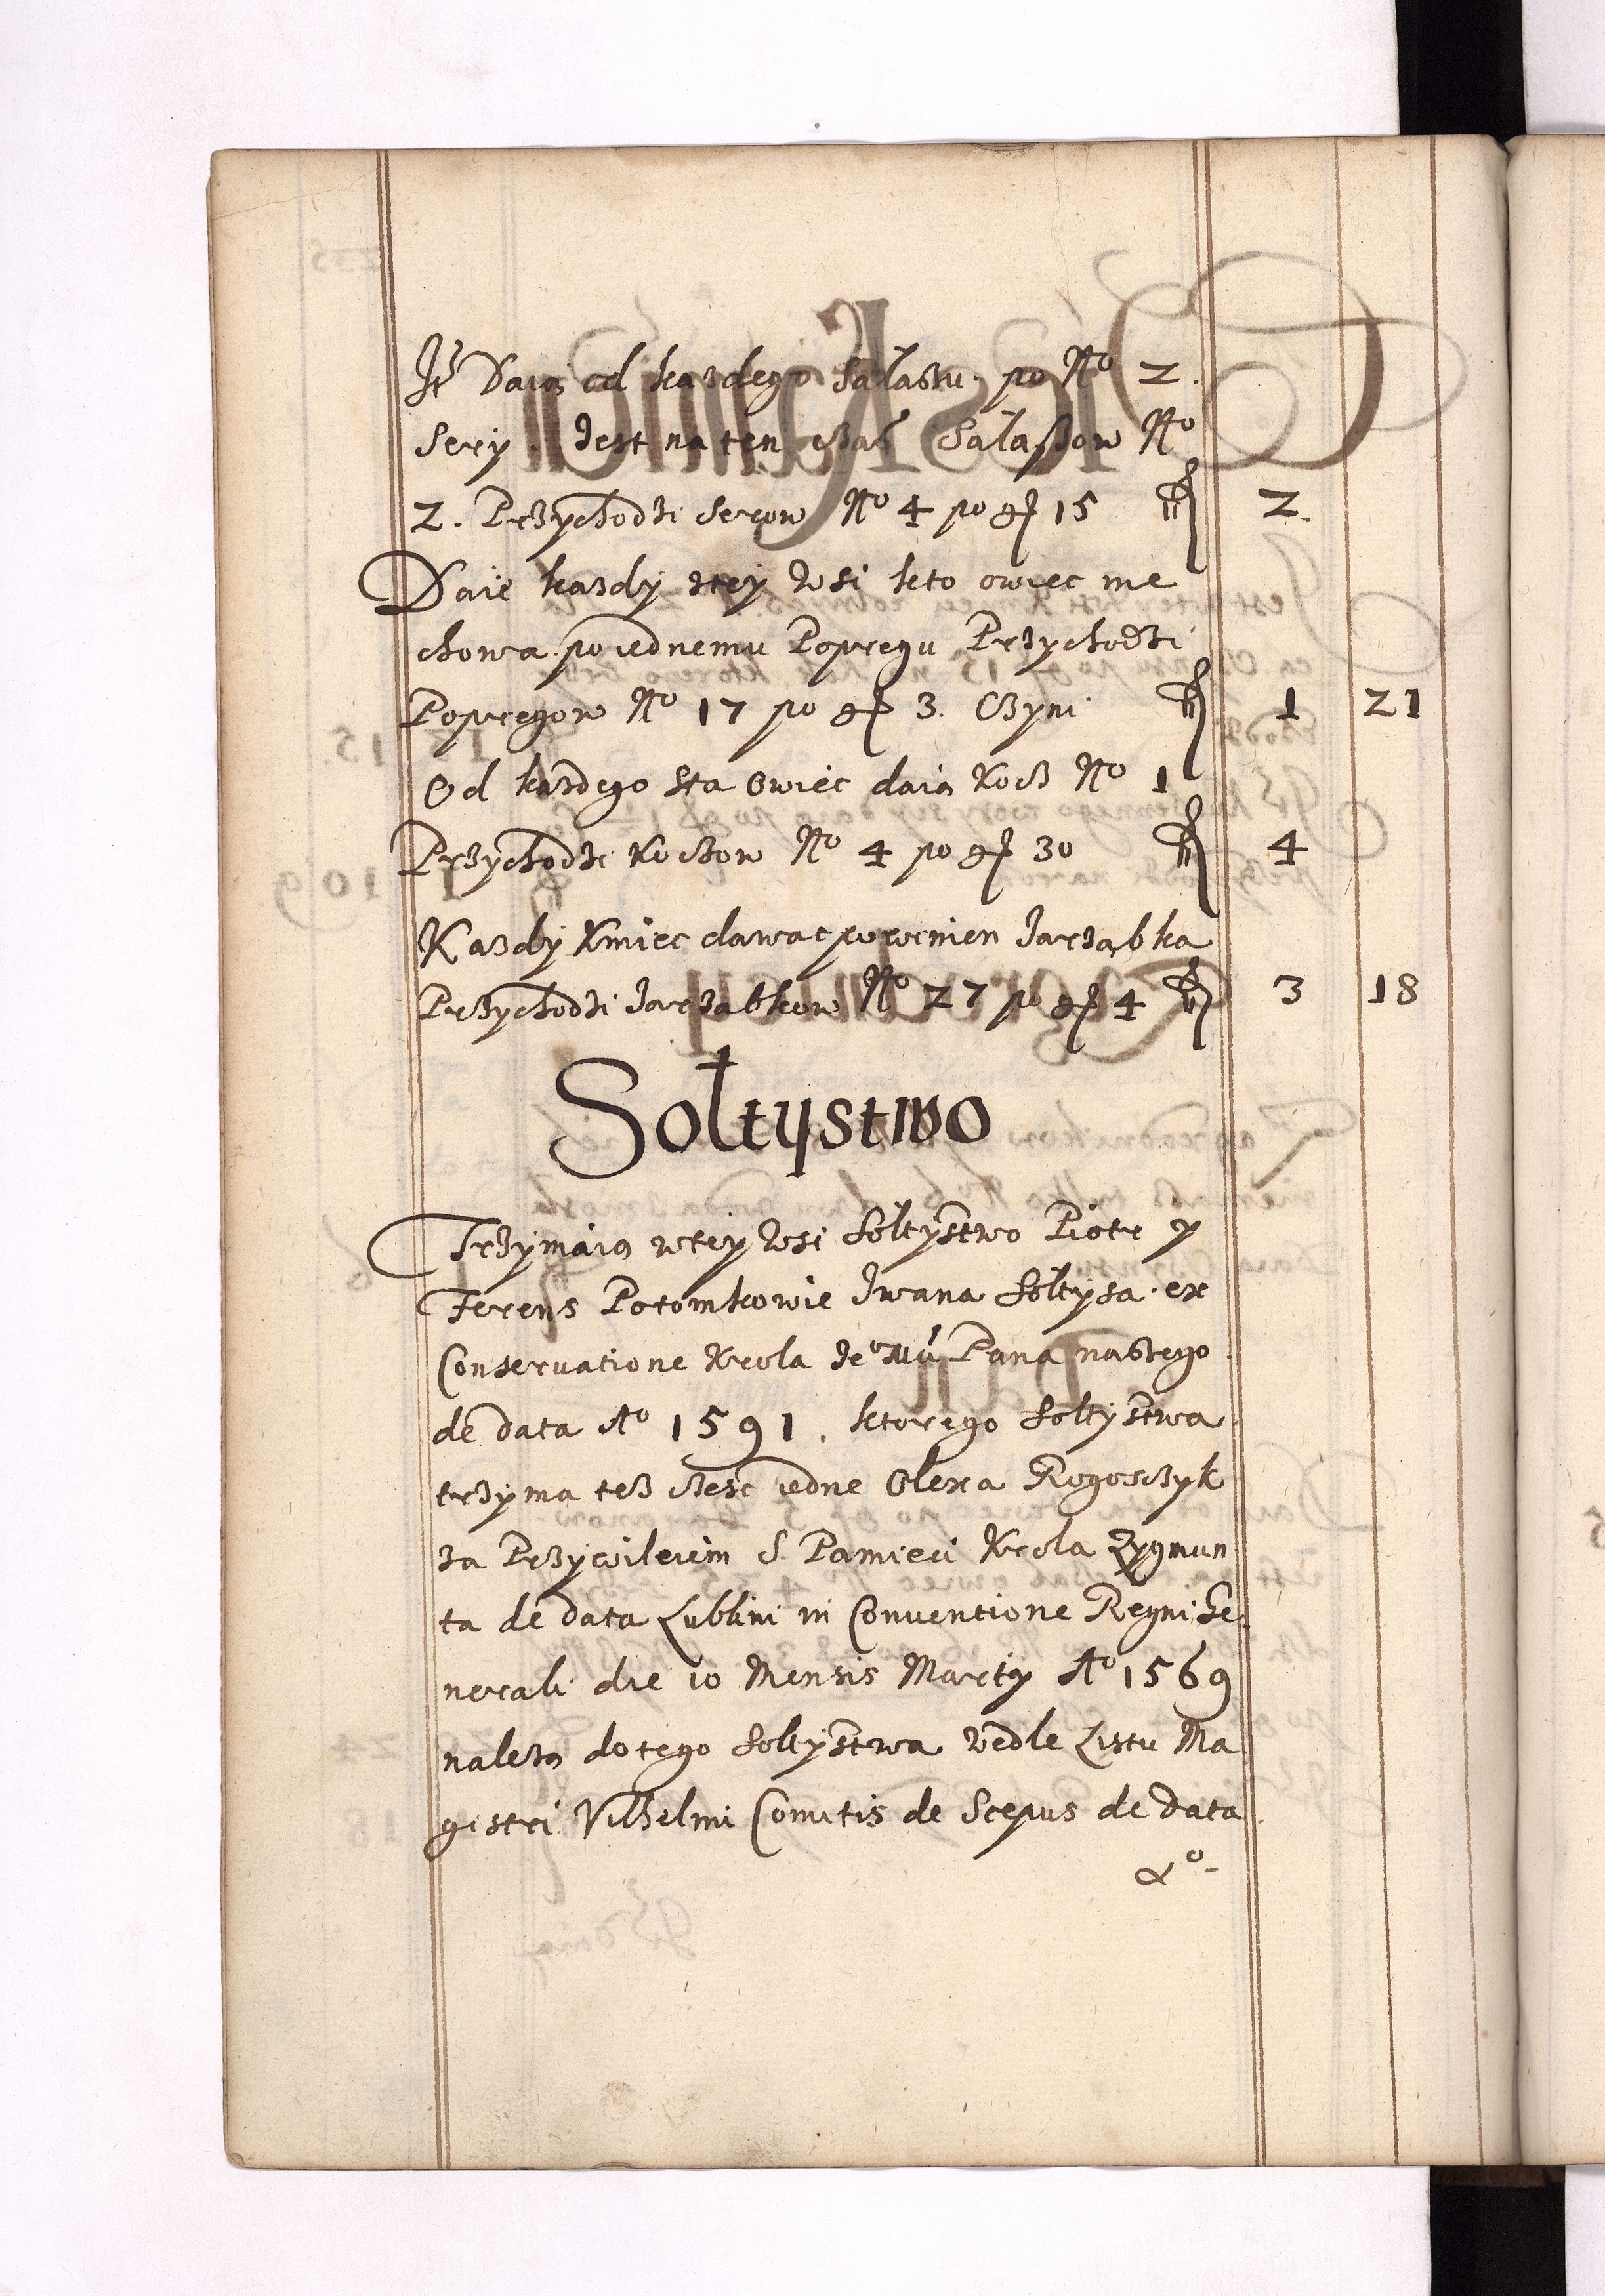 Itē Daią od kazdego Sałaszu po No 2.
Sery. Jest na ten czas Sałaszow No
2. Przychodzi Serow No 4 po gr 15 f 2.
Daie kazdy stey Wsi kto owiec nie
chowa po iednemu Popregu Przychodzi
Popregow No 17 po gr 3. Czyni f 1 21
Od kazdego Sta Owiec daią Kocz No 1
Przychodzi Koczow No 4 po gr 30 f 4
Kazdy Kmiec dawac powinien Jarząbka
Przychodzi Jarząbkow No 27 po gr 4 f 3 18
Sołtystwo
Trzymaią wtey Wsi Sołtystwo Piotr y
Ferens Potomkowie Iwana Sołtysa ex
Conseruatione Krola Jeo Mci Pana naszego
de data Ao 1591. ktorego Sołtystwa
trzyma tesz czesc iedne Olexa Rogosczyk
za Przywileiem S. Pamieci Krola Zygmun
ta de data Lublini in Conuentione Regni Ge
nerali die 10 Mensis Marty Ao 1569
nalezą dotego Sołtystwa wedle Listu Ma
gistri Vilhelmi Comitis de Scepus de data
Ao-